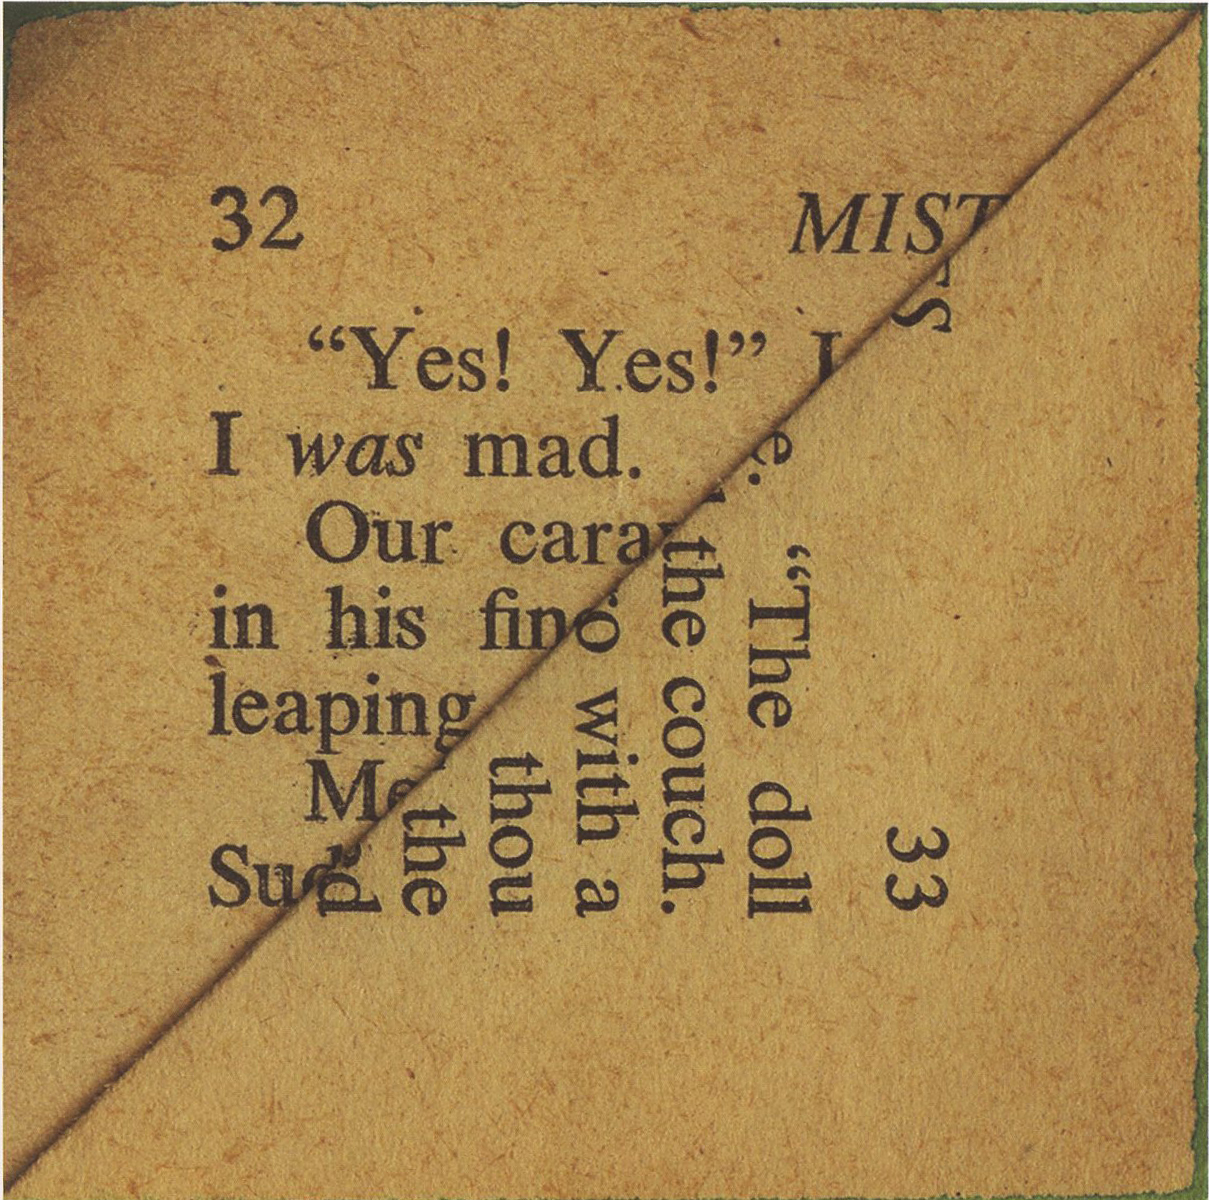 32 MIST
“Yes! Yes!” I
I was mad.
Our cara
in his fin
leaping
Me
Sud
33
S
“The doll
e.
the couch.
o with a
thou
the
d